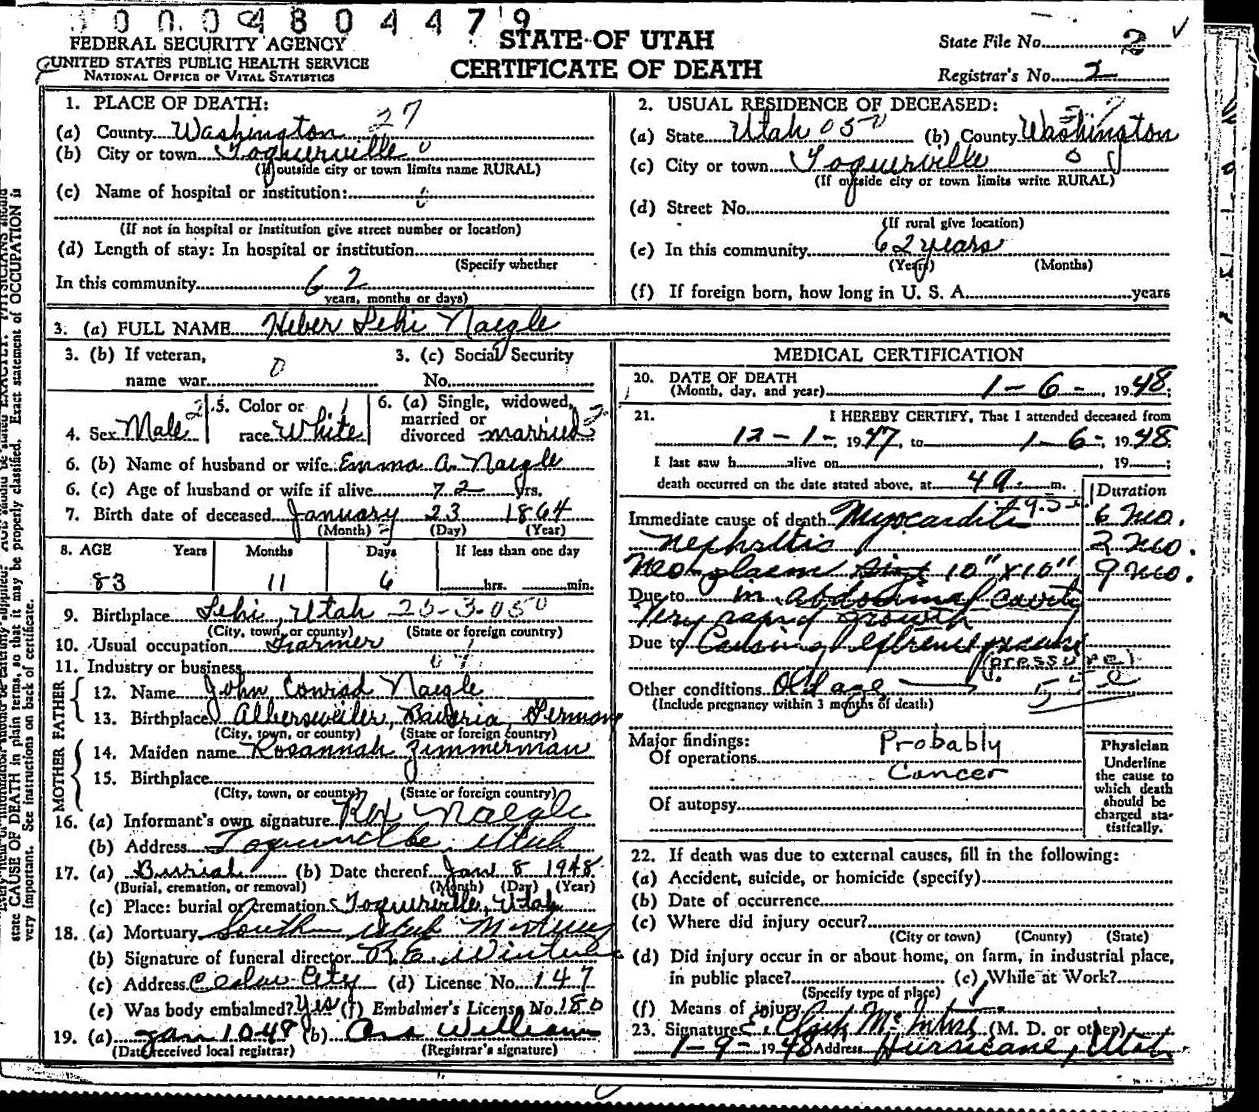 0 0 0 0 4 8 0 4 4 7 9
FEDERAL SECURITY AGENCY
UNITED STATES PUBLIC HEALTH SERVICE
NATIONAL OFFICE OF VITAL STATISTICS
STATE OF UTAH
CERTIFICATE OF DEATH
State File No. 2
Registrar's No. 2
1. PLACE OF DEATH:
(a) County Washington 27
(b) City or town Toquerville 0
(If outside city or town limits name RURAL)
(c) Name of hospital or institution:
(If not in hospital or institution give street number or location)
(d) Length of stay: In hospital or institution
(Specify whether
In this community 62
years, months or days)
2. USUAL RESIDENCE OF DECEASED:
(a) State Utah 050 (b) County Washington
(c) City or town Toquerville 0
(If outside city or town limits write RURAL)
(d) Street No.
(If rural give location)
(e) In this community 62 years
(Years) (Months)
(f) If foreign born, how long in U. S. A. years
3. (a) FULL NAME Heber Lehi Naegle
3. (b) If veteran, 3. (c) Social Security
name war 0 No.
4. Sex Male 5. Color or race White 6. (a) Single, widowed, married or divorced married
6. (b) Name of husband or wife Emma A. Naegle
6. (c) Age of husband or wife if alive 72 yrs.
7. Birth date of deceased January 23 1864
(Month) (Day) (Year)
8. AGE Years Months Days If less than one day
83 11 6 hrs. min.
9. Birthplace Lehi, Utah 25-3-050
(City, town, or county) (State or foreign country)
10. Usual occupation Farmer
11. Industry or business
FATHER
12. Name John Conrad Naegle
13. Birthplace Albersweiler, Bavaria, Germany
(City, town, or county) (State or foreign country)
MOTHER
14. Maiden name Rosannah Zimmerman
15. Birthplace
(City, town, or county) (State or foreign country)
16. (a) Informant's own signature Rex Naegle
(b) Address Toquerville, Utah
17. (a) Burial (b) Date thereof Jan 8 1948
(Burial, cremation, or removal) (Month) (Day) (Year)
(c) Place: burial or cremation Toquerville, Utah
18. (a) Mortuary South Utah Mortuary
(b) Signature of funeral director
(c) Address Cedar City (d) License No. 147
(e) Was body embalmed? Yes (f) Embalmer's License No. 180
19. (a) Jan 10 48 (b) Williams
(Date received local registrar) (Registrar's signature)
MEDICAL CERTIFICATION
20. DATE OF DEATH
(Month, day, and year) 1-6-, 1948;
21. I HEREBY CERTIFY, That I attended deceased from
12-1-, 1947, to 1-6-, 1948.
I last saw h alive on , 19 ;
death occurred on the date stated above, at 4 a. m.
Duration
Immediate cause of death Myocarditis 6 mo.
nephritis 2 mo.
Neoplasm size 10" x 10" 9 mo.
Due to in abdominal cavity
Very rapid growth
Due to Causing extreme pressure
(pressure)
Other conditions Old age
(Include pregnancy within 3 months of death)
Major findings:
Of operations Probably
Cancer
Of autopsy
Physician
Underline
the cause to
which death
should be
charged sta-
tistically.
22. If death was due to external causes, fill in the following:
(a) Accident, suicide, or homicide (specify)
(b) Date of occurrence
(c) Where did injury occur?
(City or town) (County) (State)
(d) Did injury occur in or about home, on farm, in industrial place,
in public place? (e) While at Work?
(Specify type of place)
(f) Means of injury
23. Signature E. Clark McIntire (M. D. or other)
1-9-1948 Address Hurricane, Utah
state CAUSE OF DEATH in plain terms, so that it may be properly classified. Exact statement of OCCUPATION is
very important. See instructions on back of certificate.